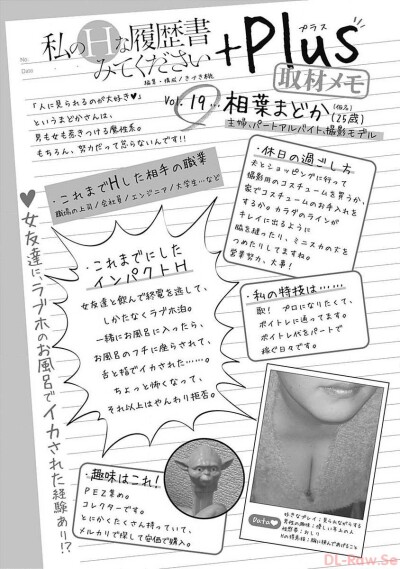 No.
Date
私のHな履歴書
みてください
+Plus
プラス
取材メモ
Vol.19…相葉まどか(仮名)
(25歳)
主婦、パートアルバイト、撮影モデル
「人に見られるのが大好き♥」
というまどかさんは、
男も女も惹きつける魔性系。
もちろん、努力だって怠らないんです!!
・これまでHした相手の職業
職場の上司/会社員/エンジニア/大学生…など
・休日の過ごし方
夫とショッピングに行って
撮影用のコスチュームを買うか、
家でコスチュームのお手入れを
するか。カラダのラインが
キレイに出るように
脇を縫ったり、ミニスカの丈を
つめたりしてますね。
営業努力、大事!
・これまでにした
インパクトH
女友達と飲んで終電を逃して、
しかたなくラブホ泊。
一緒にお風呂に入ったら、
お風呂のフチに座らされて、
舌と指でイカされた……。
ちょっと怖くなって、
それ以上はやんわり拒否。
・私の特技は……
歌! プロになりたくて、
ボイトレに通ってます。
ボイトレ代をパートで
稼ぐ日々です。
♥女友達に、ラブホのお風呂でイカされた経験あり!?
・趣味はこれ!
PEZ集め。
コレクターです。
とにかくたくさん持っていて、
メルカリで探して安価で購入。
Data♥
好きなプレイ:見られながらする
男性の趣味:優しい年上の人
性感帯:おしり
DL-Raw.Se